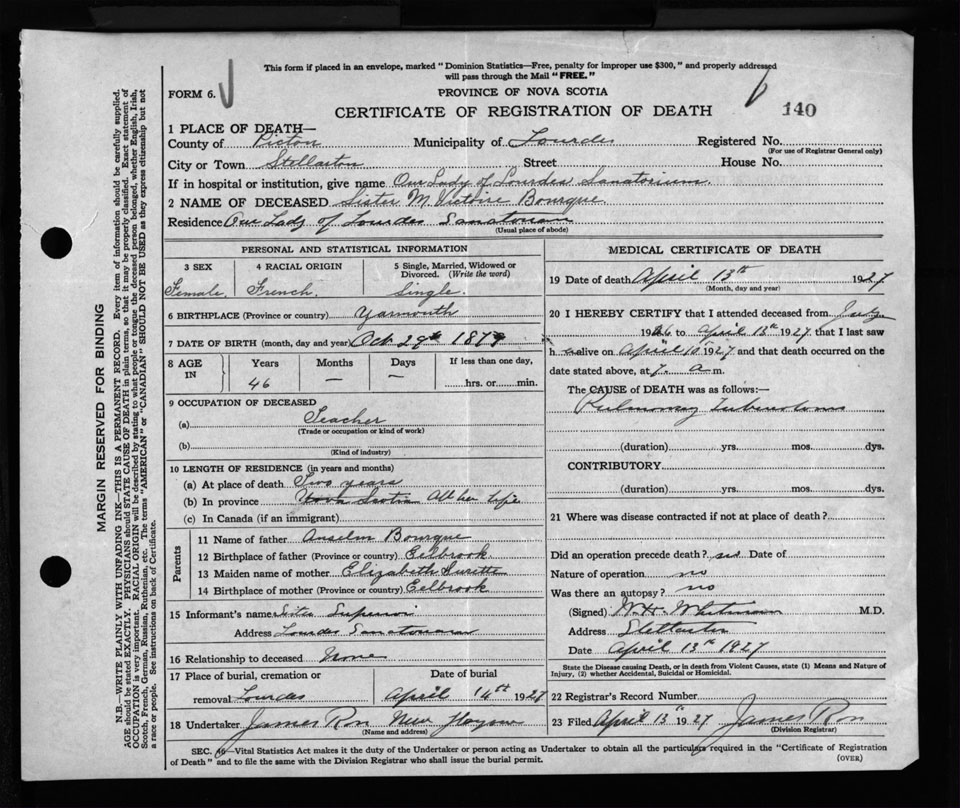 This form if placed in an envelope, marked "Dominion Statistics—Free, penalty for improper use $300," and properly addressed
will pass through the Mail "FREE."
FORM 6.
PROVINCE OF NOVA SCOTIA
CERTIFICATE OF REGISTRATION OF DEATH
140
1 PLACE OF DEATH—
County of Pictou Municipality of Lourdes Registered No.
(For use of Registrar General only)
City or Town Stellarton Street House No.
If in hospital or institution, give name Our Lady of Lourdes Sanatorium.
2 NAME OF DECEASED Sister M. Victoire Bourque
Residence Our Lady of Lourdes Sanatorium
(Usual place of abode)
PERSONAL AND STATISTICAL INFORMATION
3 SEX
4 RACIAL ORIGIN
5 Single, Married, Widowed or
Divorced. (Write the word)
Female. French. Single.
6 BIRTHPLACE (Province or country) Yarmouth
7 DATE OF BIRTH (month, day and year) Oct 29th 1879
8 AGE
IN
Years Months Days
If less than one day,
46 — —
hrs. or min.
9 OCCUPATION OF DECEASED
(a) Teacher
(Trade or occupation or kind of work)
(b)
(Kind of industry)
10 LENGTH OF RESIDENCE (in years and months)
(a) At place of death Two years
(b) In province Nova Scotia All her Life
(c) In Canada (if an immigrant)
Parents
11 Name of father Anselm Bourque
12 Birthplace of father (Province or country) Eelbrook
13 Maiden name of mother Elizabeth Surette
14 Birthplace of mother (Province or country) Eelbrook
15 Informant's name Sister Superior
Address Lourdes Sanatorium
16 Relationship to deceased None
17 Place of burial, cremation or
removal Lourdes
Date of burial
April 14th 1927
18 Undertaker James Ron New
(Name and address)
MEDICAL CERTIFICATE OF DEATH
19 Date of death April 13th 1927
(Month, day and year)
20 I HEREBY CERTIFY that I attended deceased from
1926 to April 13th 1927 that I last saw
h alive on April 10 1927 and that death occurred on the
date stated above, at 7. a m.
The CAUSE of DEATH was as follows:—
Pulmonary Tuberculosis
(duration) yrs. mos. dys.
CONTRIBUTORY
(duration) yrs. mos. dys.
21 Where was disease contracted if not at place of death?
Did an operation precede death? no Date of
Nature of operation no
Was there an autopsy? no
(Signed) W.H. Whitman M.D.
Address Stellarton
Date April 13th 1927
State the Disease causing Death, or in death from Violent Causes, state (1) Means and Nature of
Injury, (2) whether Accidental, Suicidal or Homicidal.
22 Registrar's Record Number
23 Filed April 13th 1927 James Ron
(Division Registrar)
SEC. 46—Vital Statistics Act makes it the duty of the Undertaker or person acting as Undertaker to obtain all the particulars required in the "Certificate of Registration
of Death" and to file the same with the Division Registrar who shall issue the burial permit.
(OVER)
MARGIN RESERVED FOR BINDING
N.B.—WRITE PLAINLY WITH UNFADING INK—THIS IS A PERMANENT RECORD. Every item of information should be carefully supplied.
AGE should be stated EXACTLY. PHYSICIANS should STATE CAUSE OF DEATH in plain terms, so that it may be properly classified. Exact statement of
OCCUPATION is very important. RACIAL ORIGIN will be described by stating to what people or tongue the deceased person belonged, whether English, Irish,
Scotch, French, German, Russian, Ruthenian, etc. The terms "AMERICAN" or "CANADIAN" SHOULD NOT BE USED as they express citizenship but not
a race or people. See instructions on back of Certificate.